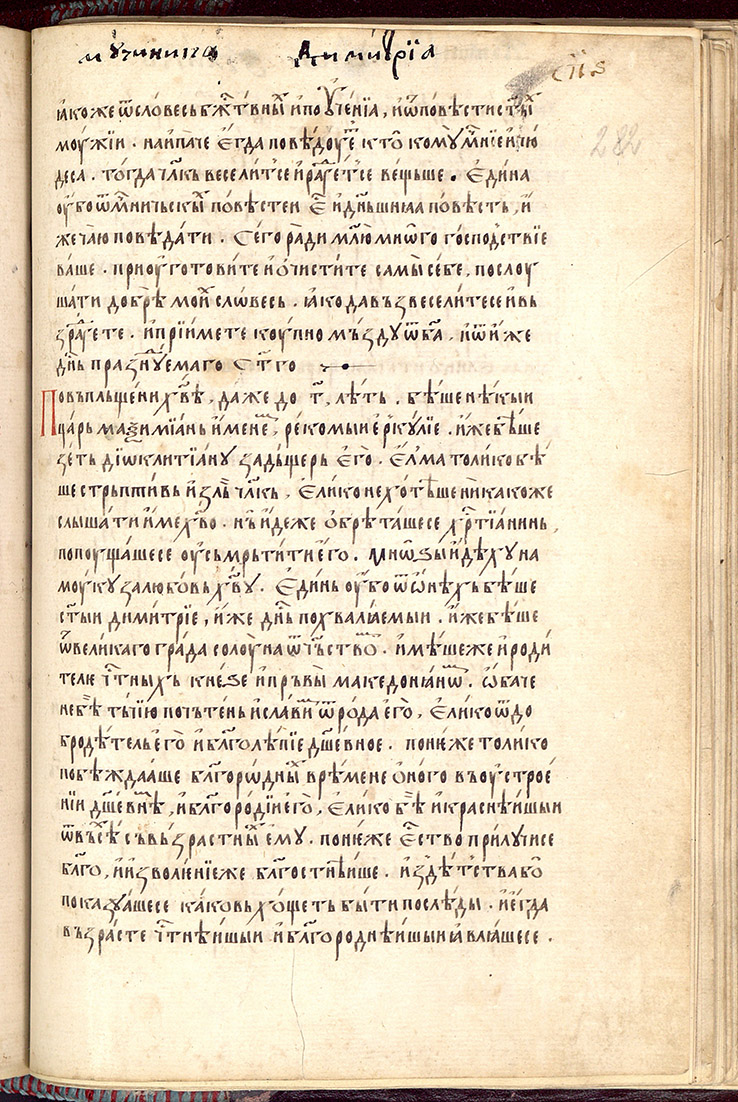 мꙋчиника Димитрїа
сп҃ѕ
282
ꙗкоже ѿ словесь бж҃тⷭ҇вныⷯ и поꙋченїа, и ѿ повѣсти ст҃ыⷯ
моужїи · наипаче ѥгда повѣдоуѥⷮ кто комꙋ мⷱ҇нїе и чю
деса · тогда чл҃кь веселитсе и раⷣꙋетсе веѱьше · Ѥдина
оубо ѿ мⷱ҇ничьскыⷯ повѣстеи ѥⷭ҇ и дн҃ьшнꙗа повѣсть, и
же чаю повѣдати · Сего ради млю̀ мнѡго господⷭ҇твїе
ваше · приоуготовите и очистите самы себе, послоу
шати добрѣ моиⷯ словесь · ꙗко да възвеселитесе и въ
зраⷣꙋете · и прїимете коупно мъздꙋ ѿ ба҃, и ѿ иже
дн҃ь празⷣнꙋемаго ст҃го
По въпльщени хв҃ѣ, даже до т҃, лѣть · бѣше нѣкыи
царь маѯимїань именеⷨ, рекомыи еркꙋлїе · иже бѣше
зеть дїѡклитїанꙋ за дьщерь его · Елма толико бѣ
ше стрьптивь и зль чл҃кь, елико не хотѣше никакоже
слышати име хв҃о · нь идеже обрѣташесе хрⷭ҇тїанинь,
попоущашесе оусьмрьтитⷭ҇и его · Мнѡѕы идѣхꙋ на
моукꙋ за любовь хв҃ꙋ · Единь оубо ѿ ѡнѣхь бѣше
ст҃ыи димитрїе, иже дн҃ь похвалꙗемыи · иже бѣше
ѿ великаго града солоуна ѿчⷭ҇ьствоⷨ · имѣше же и роди
телю чⷭ҇тныхь кнеѕе и прьвы македонїанѡⷨ · ѡбаче
не бѣ тьчїю почьтень и славнь ѿ рода его, елико ѿ до
бродѣтель его и благолѣпїе дш҃евное · понеже толико
побѣждааше благорѡдныⷯ врѣмене оного въ оустрое
нїи дш҃евнѣⷨ, и благородїи его, елико бѣ и краснѣишыи
ѿ въсѣⷯ съвъзрастныⷯ емꙋ · понеже ѥⷭ҇ство прилꙋчисе
благо, и изволенїе же благостнѣише · из дѣтства бо
показꙋашесе каковь хощеть быти послѣды · и егда
възрасте чⷭ҇тнѣишыи и благороднѣишыи ꙗвлꙗшесе ·